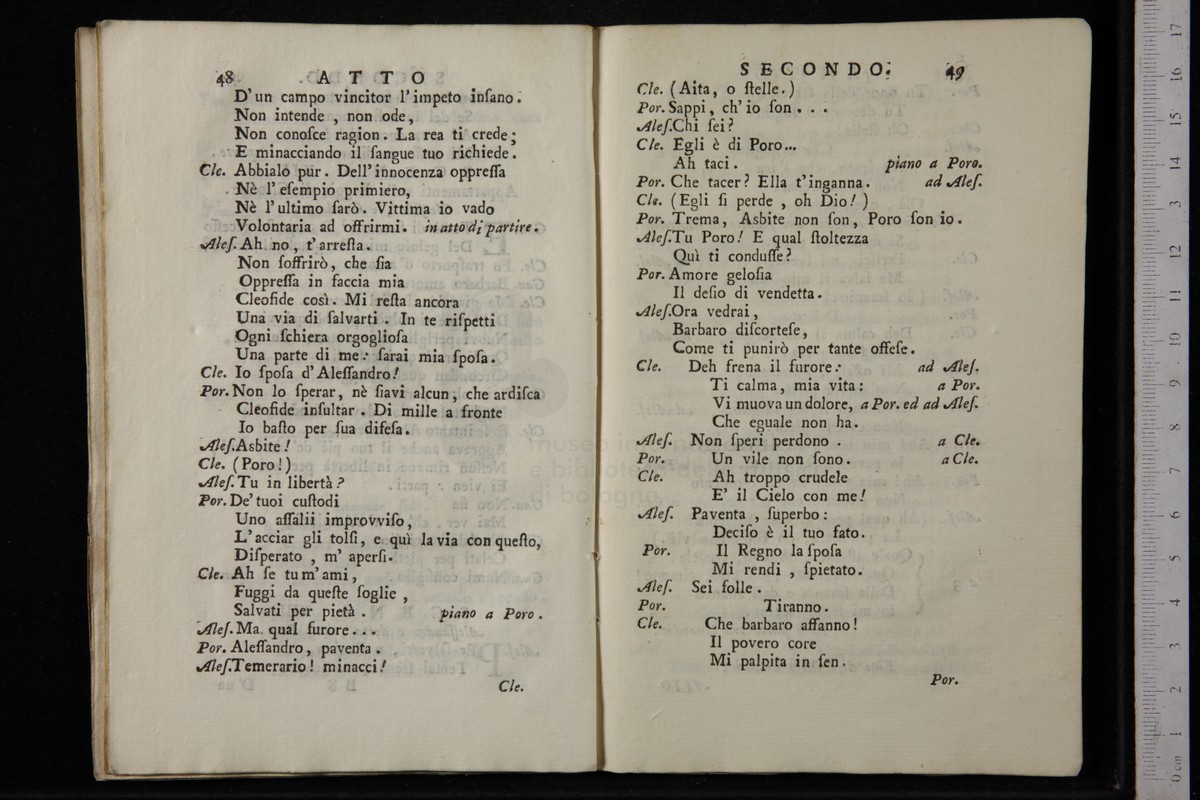 48 ATTO
D'un campo vincitor l'impeto inſano.
Non intende , non ode,
Non conoſce ragion. La rea ti crede;
E minacciando il ſangue tuo richiede.
Cle. Abbialo pur. Dell'innocenza oppreſſa
Nè l'eſempio primiero,
Nè l'ultimo ſarò. Vittima io vado
Volontaria ad offrirmi. in atto di partire.
Aleſ. Ah no, t'arreſta.
Non ſoffrirò, che ſia
Oppreſſa in faccia mia
Cleofide così. Mi reſta ancora
Una via di ſalvarti . In te riſpetti
Ogni ſchiera orgoglioſa
Una parte di me: ſarai mia ſpoſa.
Cle. Io ſpoſa d'Aleſſandro!
Por. Non lo ſperar, nè ſiavi alcun, che ardiſca
Cleofide inſultar . Di mille a fronte
Io baſto per ſua difeſa.
Aleſ. Asbite!
Cle. (Poro!)
Aleſ. Tu in libertà?
Por. De' tuoi cuſtodi
Uno aſſalii improvviſo,
L'acciar gli tolſi, e quì la via con queſto,
Diſperato , m' aperſi.
Cle. Ah ſe tu m'ami,
Fuggi da queſte ſoglie ,
Salvati per pietà . piano a Poro.
Aleſ. Ma qual furore...
Por. Aleſſandro, paventa .
Aleſ. Temerario! minacci!
Cle.
SECONDO. 49
Cle. (Aita, o ſtelle.)
Por. Sappi, ch'io ſon...
Aleſ. Chi ſei?
Cle. Egli è di Poro...
Ah taci. piano a Poro.
Por. Che tacer? Ella t'inganna. ad Aleſ.
Cle. (Egli ſi perde , oh Dio! )
Por. Trema, Asbite non ſon, Poro ſon io.
Aleſ. Tu Poro! E qual ſtoltezza
Quì ti conduſſe?
Por. Amore geloſia
Il deſio di vendetta.
Aleſ. Ora vedrai,
Barbaro diſcorteſe,
Come ti punirò per tante offeſe.
Cle. Deh frena il furore: ad Aleſ.
Ti calma, mia vita: a Por.
Vi muova un dolore, a Por. ed ad Aleſ.
Che eguale non ha.
Aleſ. Non ſperi perdono . a Cle.
Por. Un vile non ſono. a Cle.
Cle. Ah troppo crudele
E' il Cielo con me!
Aleſ. Paventa , ſuperbo:
Deciſo è il tuo fato.
Por. Il Regno la ſpoſa
Mi rendi , ſpietato.
Aleſ. Sei folle.
Por. Tiranno.
Cle. Che barbaro affanno!
Il povero core
Mi palpita in ſen.
Por.